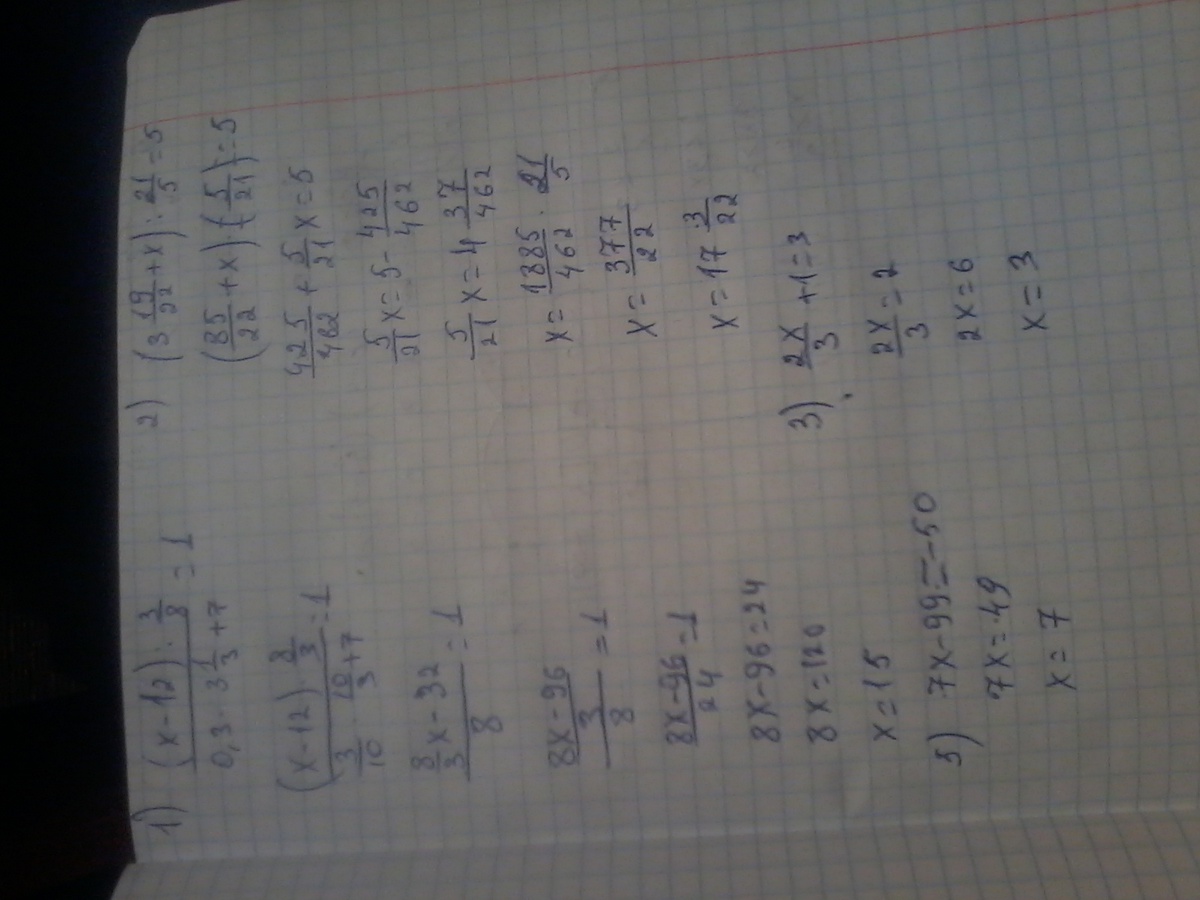 1) ((x-12) : 3/8)/(0,3 · 3 1/3 + 7) = 1
((x-12) · 8/3)/(3/10 · 10/3 + 7) = 1
(8/3 x - 32)/8 = 1
((8x-96)/3)/8 = 1
(8x-96)/24 = 1
8x-96=24
8x=120
x=15
5) 7x-99=-50
7x=49
x=7
2) (3 19/22 + x) : 21/5 = 5
(85/22 + x) · (5/21) = 5
425/462 + 5/21 x = 5
5/21 x = 5 - 425/462
5/21 x = 4 37/462
x = 1885/462 · 21/5
x = 377/22
x = 17 3/22
3) 2x/3 + 1 = 3
2x/3 = 2
2x=6
x=3